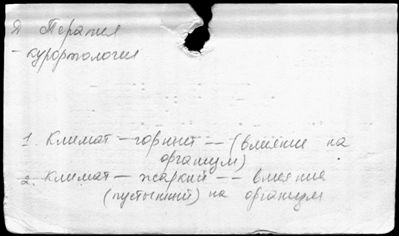 Я Терапия
- курортология
1. Климат - горный -- (влияние на
организм)
2. климат - жаркий -- влияние
(пустынный) на организм